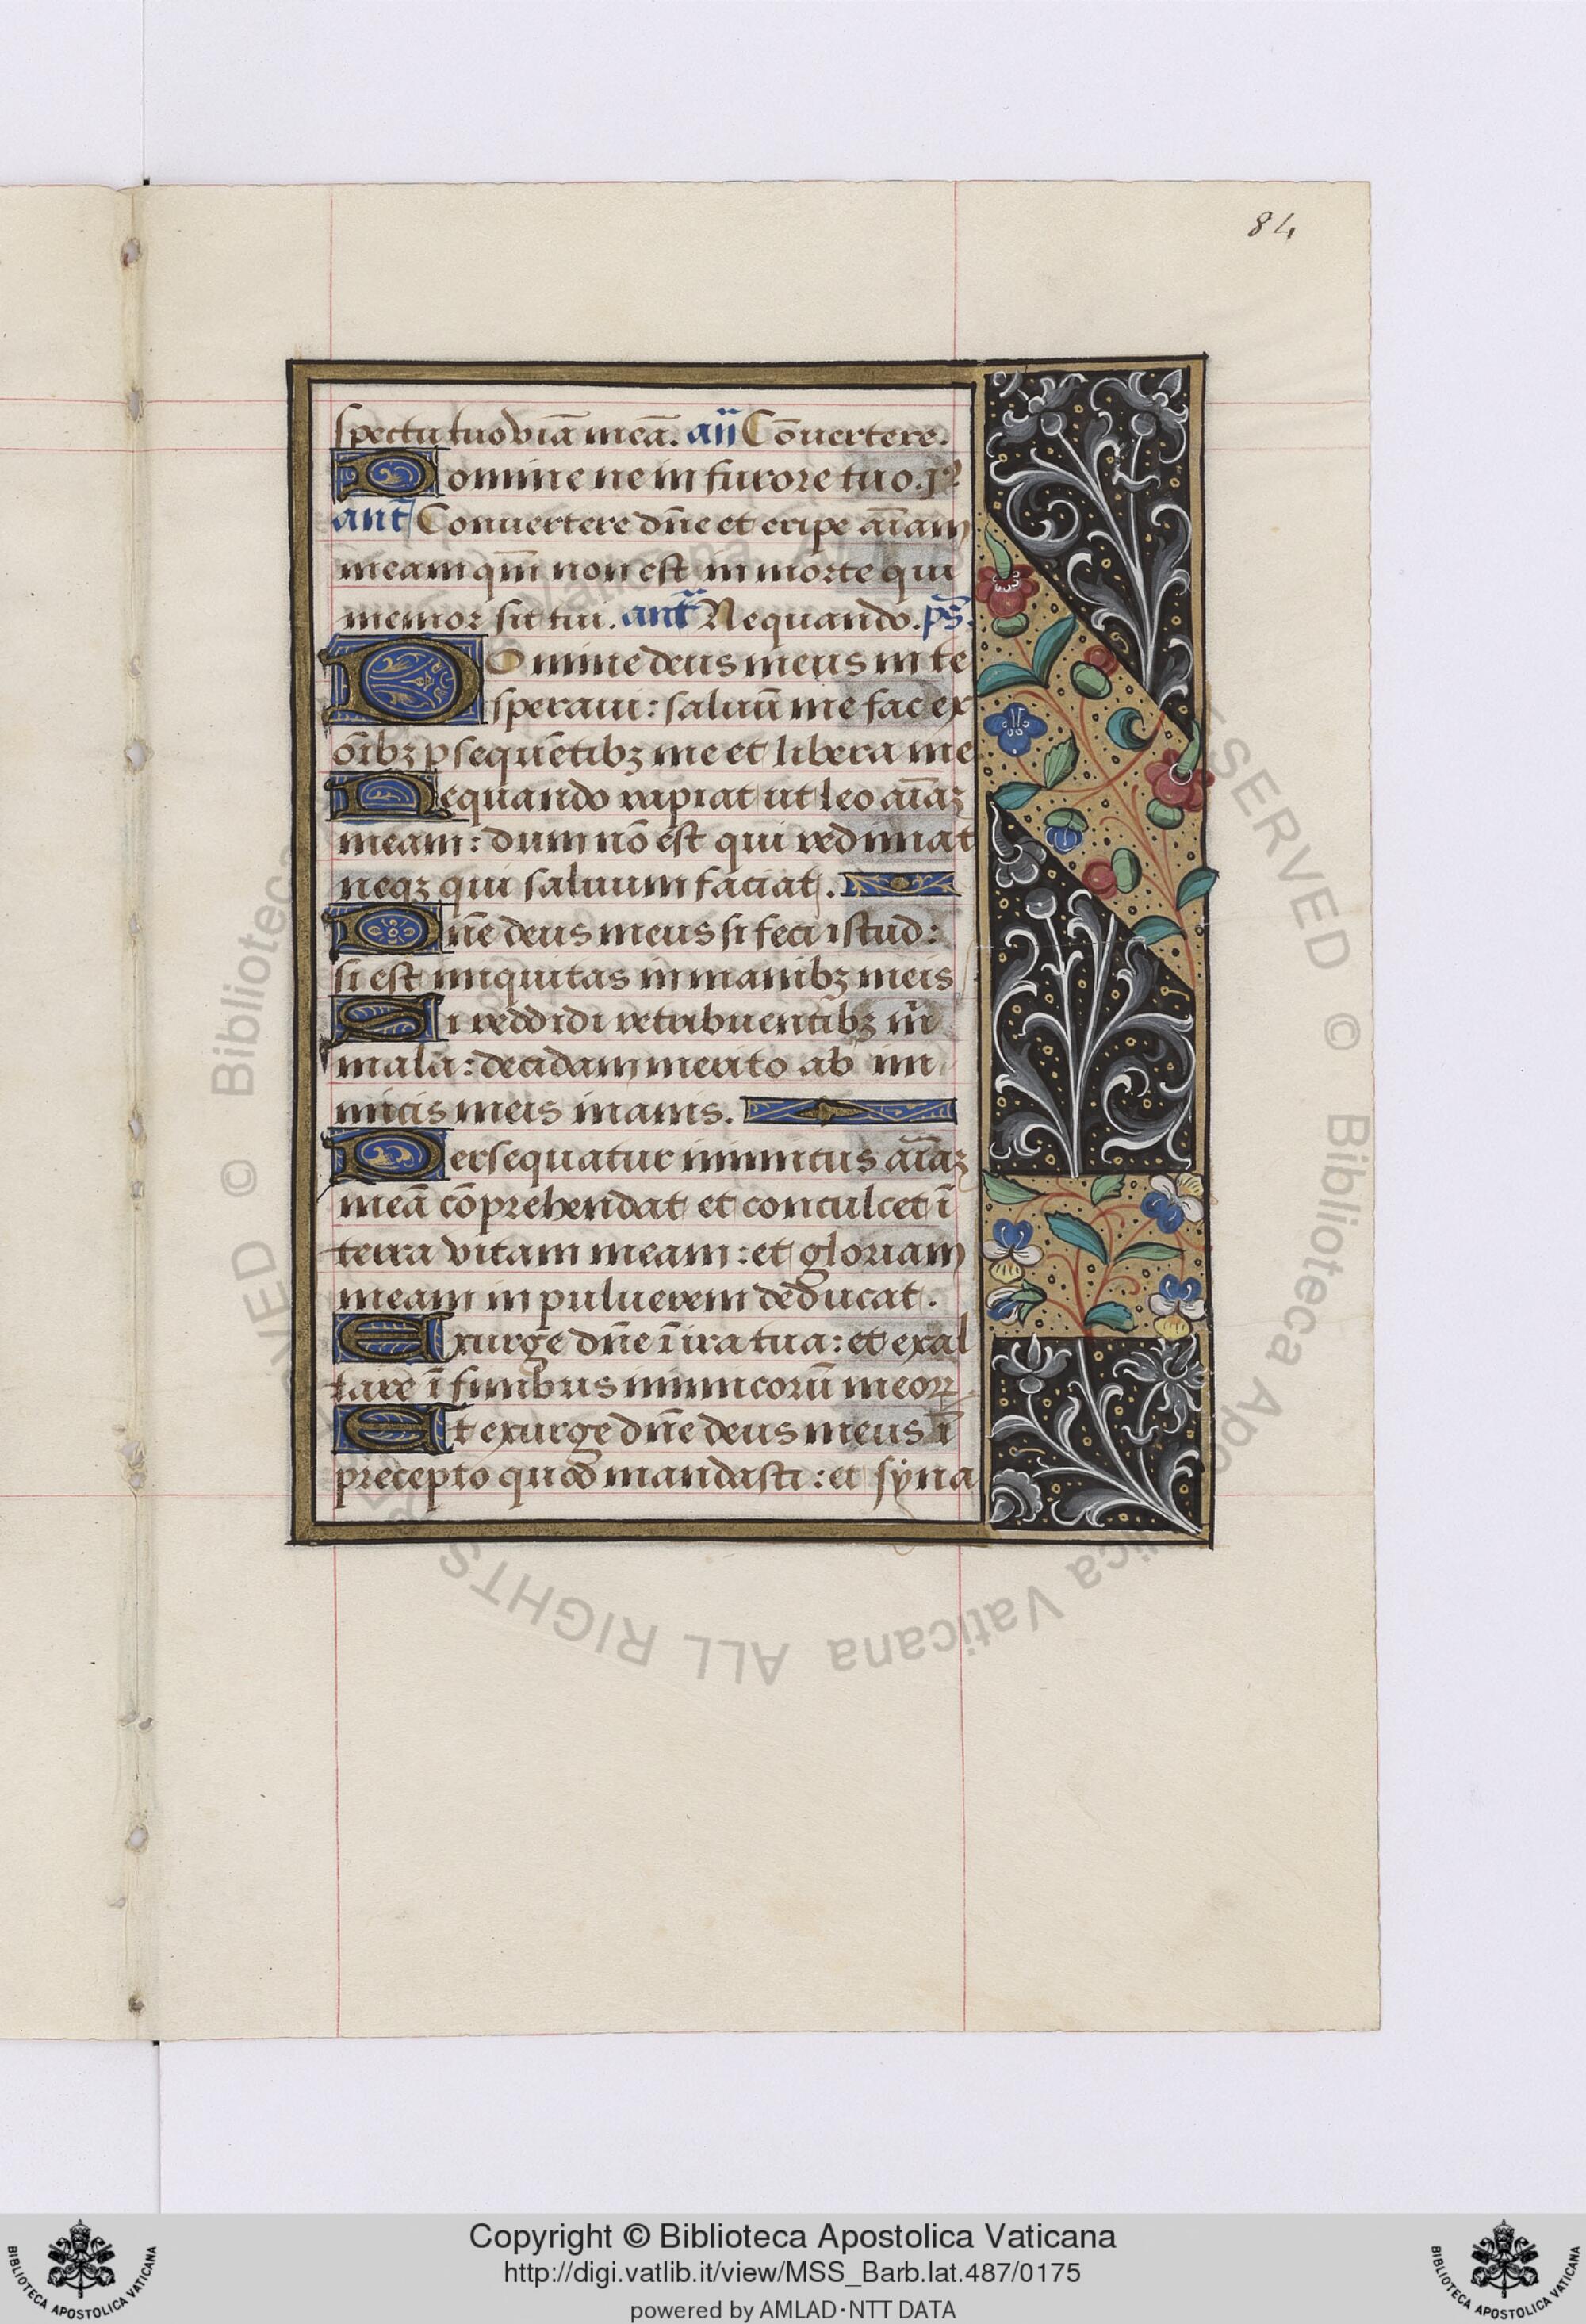 84
spectu tuo viā meā. añ Cōuertere.
Domine ne in furore tuo. jº
ant̃ Conuertere dñe et eripe aīam
meam qm̄ non est in morte qui
memor sit tui. ant̃ Nequando. ps̄.
DOmine deus meus in te
speraui: saluū me fac ex
oībꝫ ꝑsequētibꝫ me et libera me
Nequando rapiat ut leo aīaꝫ
meam: dum nō est qui redimat
neqꝫ qui saluum faciat.
Dñe deus meus si feci istud:
si est iniquitas in manibꝫ meis
Si reddidi retribuentibꝫ m̄
mala: decidam merito ab ini
micis meis inanis.
Persequatur inimicus aīaꝫ
meā cōprehendat et conculcet ī
terra vitam meam: et gloriam
meam in puluerem deducat.
Exurge dñe ī ira tua: et exal
tare ī finibus inimicorū meoꝝ
Et exurge dñe deus meus ī
precepto quod mandasti: et syna
© Biblioteca Apostolica Vaticana ALL RIGHTS RESERVED
Copyright © Biblioteca Apostolica Vaticana
http://digi.vatlib.it/view/MSS_Barb.lat.487/0175
powered by AMLAD·NTT DATA
BIBLIOTECA APOSTOLICA VATICANA
BIBLIOTECA APOSTOLICA VATICANA